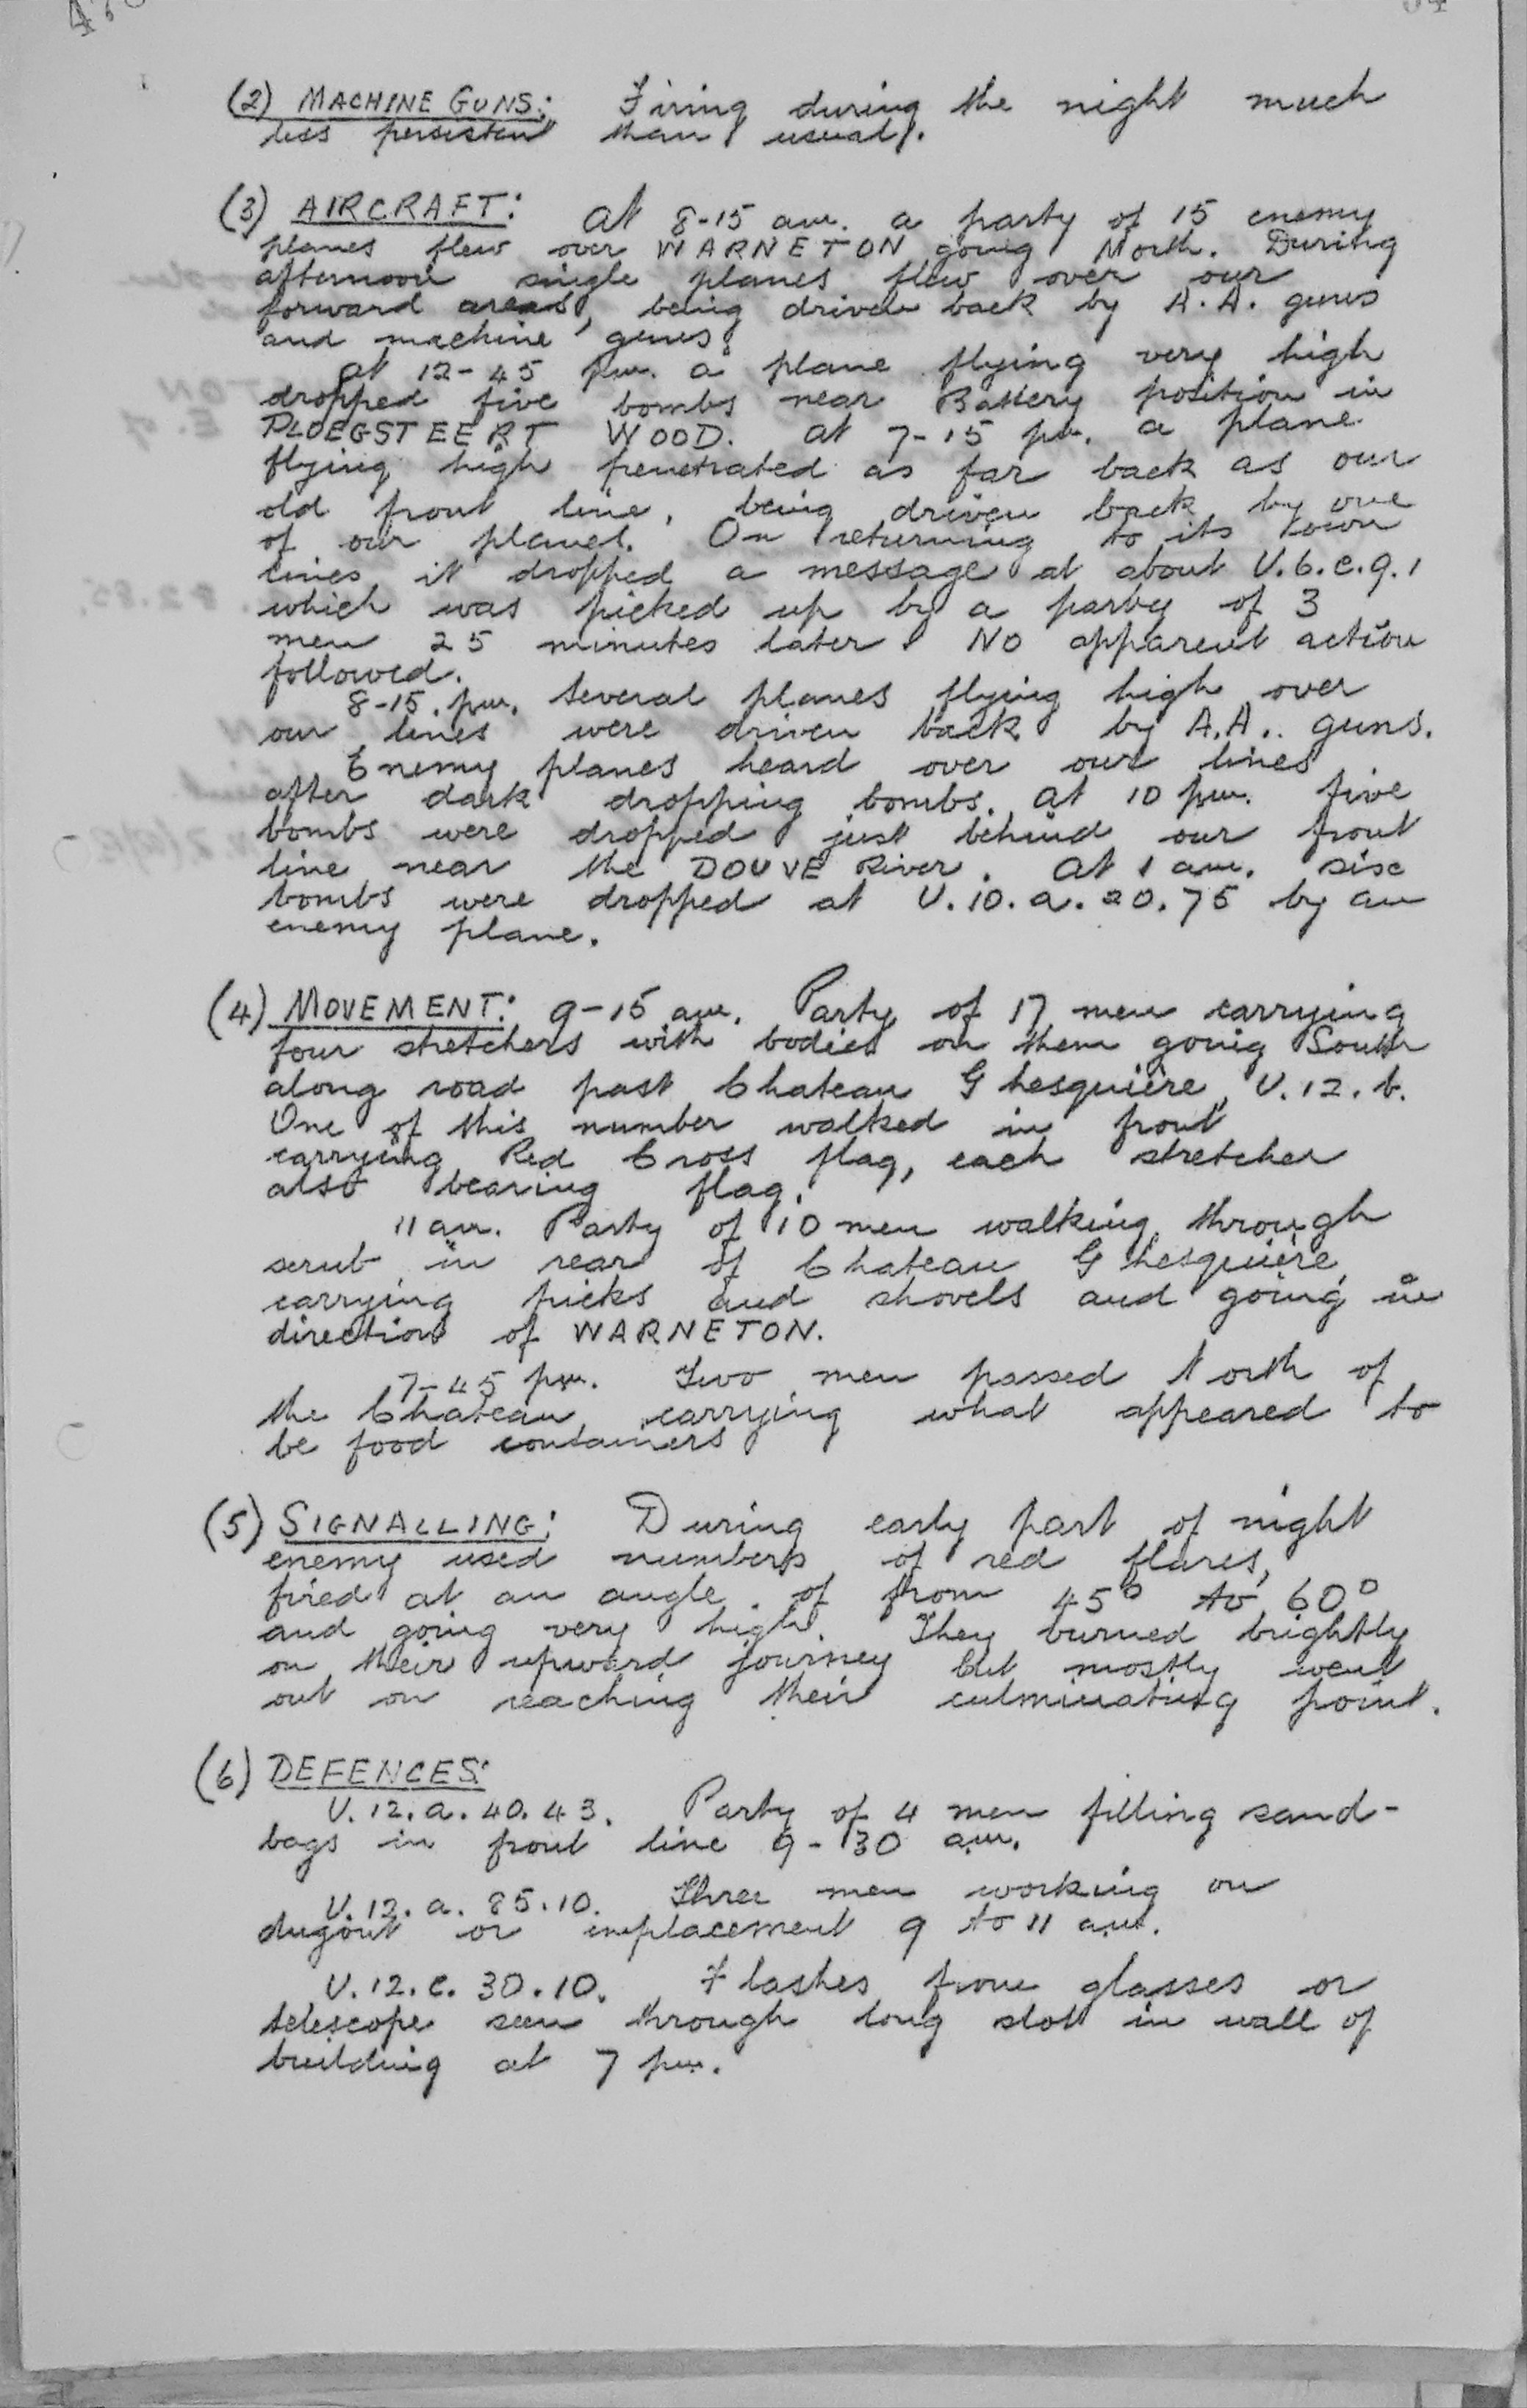 (2) MACHINE GUNS: Firing during the night much
less persistent than usual.
(3) AIRCRAFT: At 8-15 am. a party of 15 enemy
planes flew over WARNETON going North. During
afternoon single planes flew over our
forward areas, being driven back by A.A. guns
and machine guns.
At 12-45 pm. a plane flying very high
dropped five bombs near Battery position in
PLOEGSTEERT WOOD. At 7-15 pm. a plane
flying high penetrated as far back as our
old front line, being driven back by one
of our planes. On returning to its own
lines it dropped a message at about U.6.c.9.1
which was picked up by a party of 3
men 25 minutes later. No apparent action
followed.
8-15. pm. Several planes flying high over
our lines were driven back by A.A.. guns.
Enemy planes heard over our lines
after dark dropping bombs. At 10 pm. five
bombs were dropped just behind our front
line near the DOUVE River. At 1 am. six
bombs were dropped at U.10.a.20.75 by an
enemy plane.
(4) MOVEMENT: 9-15 am. Party of 17 men carrying
four stretchers with bodies on them going South
along road past Chateau Ghesquiere, U.12.b.
One of this number walked in front
carrying Red Cross flag, each stretcher
also bearing flag.
11 am. Party of 10 men walking through
scrub in rear of Chateau Ghesquiere,
carrying picks and shovels and going in
direction of WARNETON.
7-45 pm. Two men passed North of
the Chateau, carrying what appeared to
be food containers
(5) SIGNALLING: During early part of night
enemy used numbers of red flares,
fired at an angle of from 45° to 60°
and going very high. They burned brightly
on their upward journey but mostly went
out on reaching their culminating point.
(6) DEFENCES:
U.12.a.40.43. Party of 4 men filling sand-
bags in front line 9-30 am.
U.12.a.85.10. Three men working on
dugout or emplacement 9 to 11 am.
U.12.c.30.10. Flashes from glasses or
telescope seen through long slot in wall of
building at 7 pm.